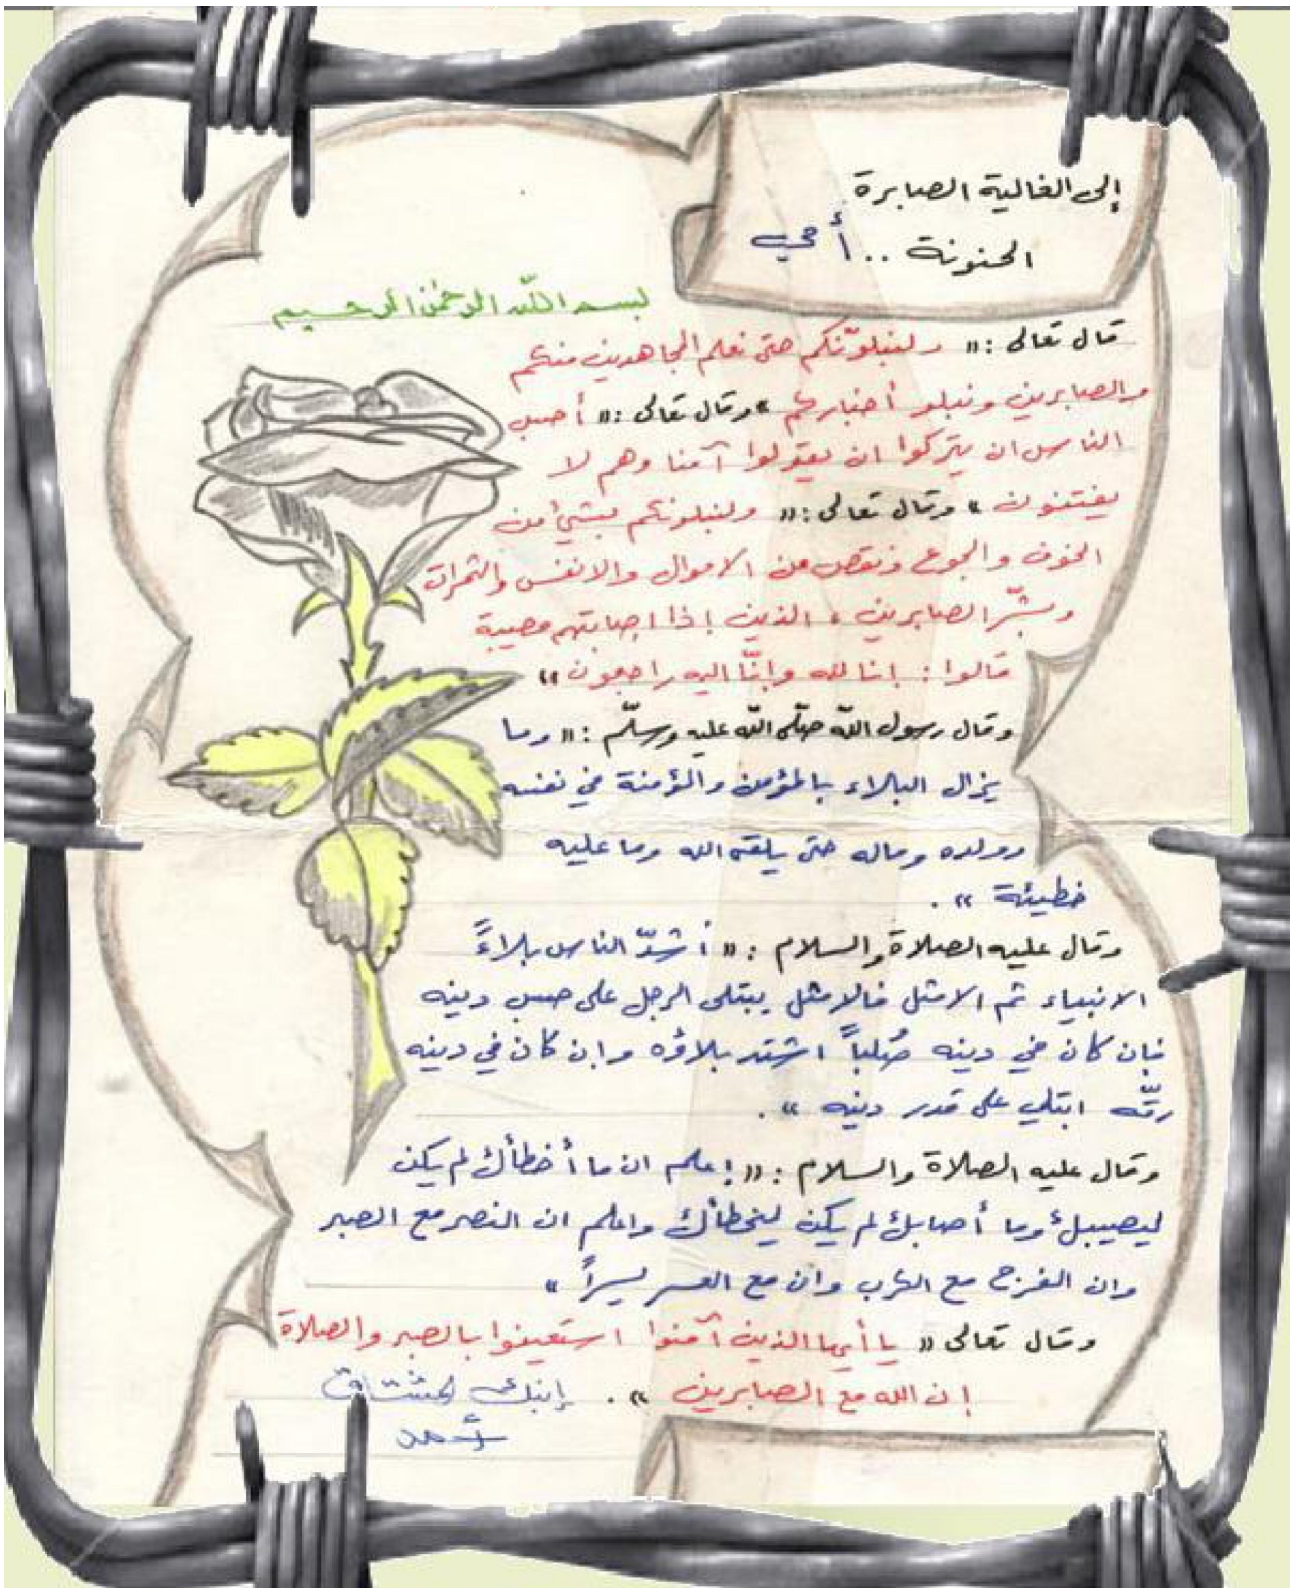 إلى الغالية الصابرة
الحنونة .. أمي
بسم الله الرحمن الرحيم
قال تعالى : « ولنبلونّكم حتى نعلم المجاهدين منكم
والصابرين ونبلو أخباركم » وقال تعالى : « أحسب
الناس ان يتركوا ان يقولوا آمنا وهم لا
يفتنون » وقال تعالى : « ولنبلونكم بشيء من
الخوف والجوع ونقص من الاموال والانفس والثمرات
وبشّر الصابرين ، الذين إذا اصابتهم مصيبة
قالوا : إنا لله وإنّا اليه راجعون »
وقال رسول اللّه صلّى اللّه عليه وسلّم : « وما
يزال البلاء بالمؤمن والمؤمنة في نفسه
وولده وماله حتى يلقى الله وما عليه
خطيئة » .
وقال عليه الصلاة والسلام : « أشدّ الناس بلاءً
الانبياء ثم الامثل فالامثل يبتلى الرجل على حسب دينه
فإن كان في دينه صُلباً اشتد بلاؤه وإن كان في دينه
رقّة ابتلي على قدر دينه » .
وقال عليه الصلاة والسلام : « إعلم ان ما أخطأك لم يكن
ليصيبك وما أصابك لم يكن ليخطأك واعلم ان النصر مع الصبر
وان الفرج مع الكرب وان مع العسر يسراً »
وقال تعالى « يا أيها الذين آمنوا استعينوا بالصبر والصلاة
إن الله مع الصابرين » . إبنك المشتاق
أحمد